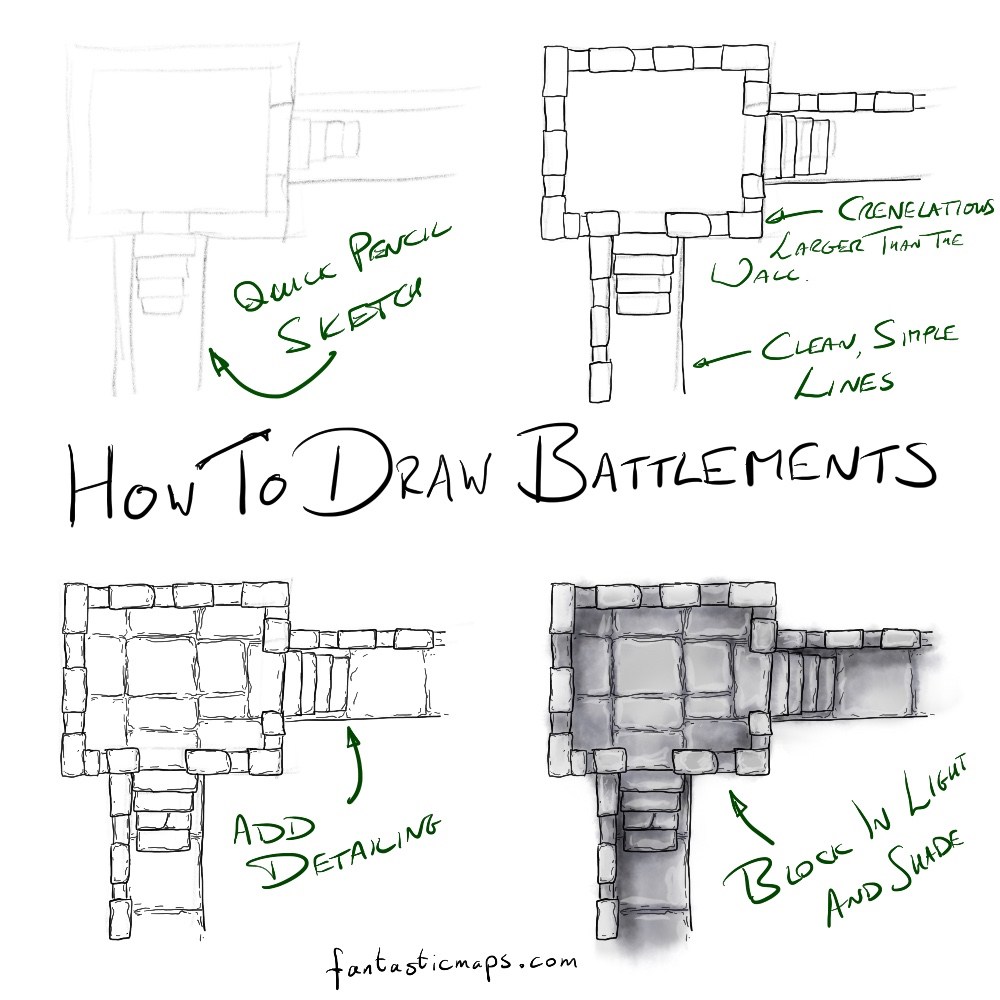 Quick Pencil
Sketch
Crenelations
Larger Than The
Wall.
Clean, Simple
Lines
How To Draw Battlements
Add
Detailing
Block In Light
And Shade
fantasticmaps.com